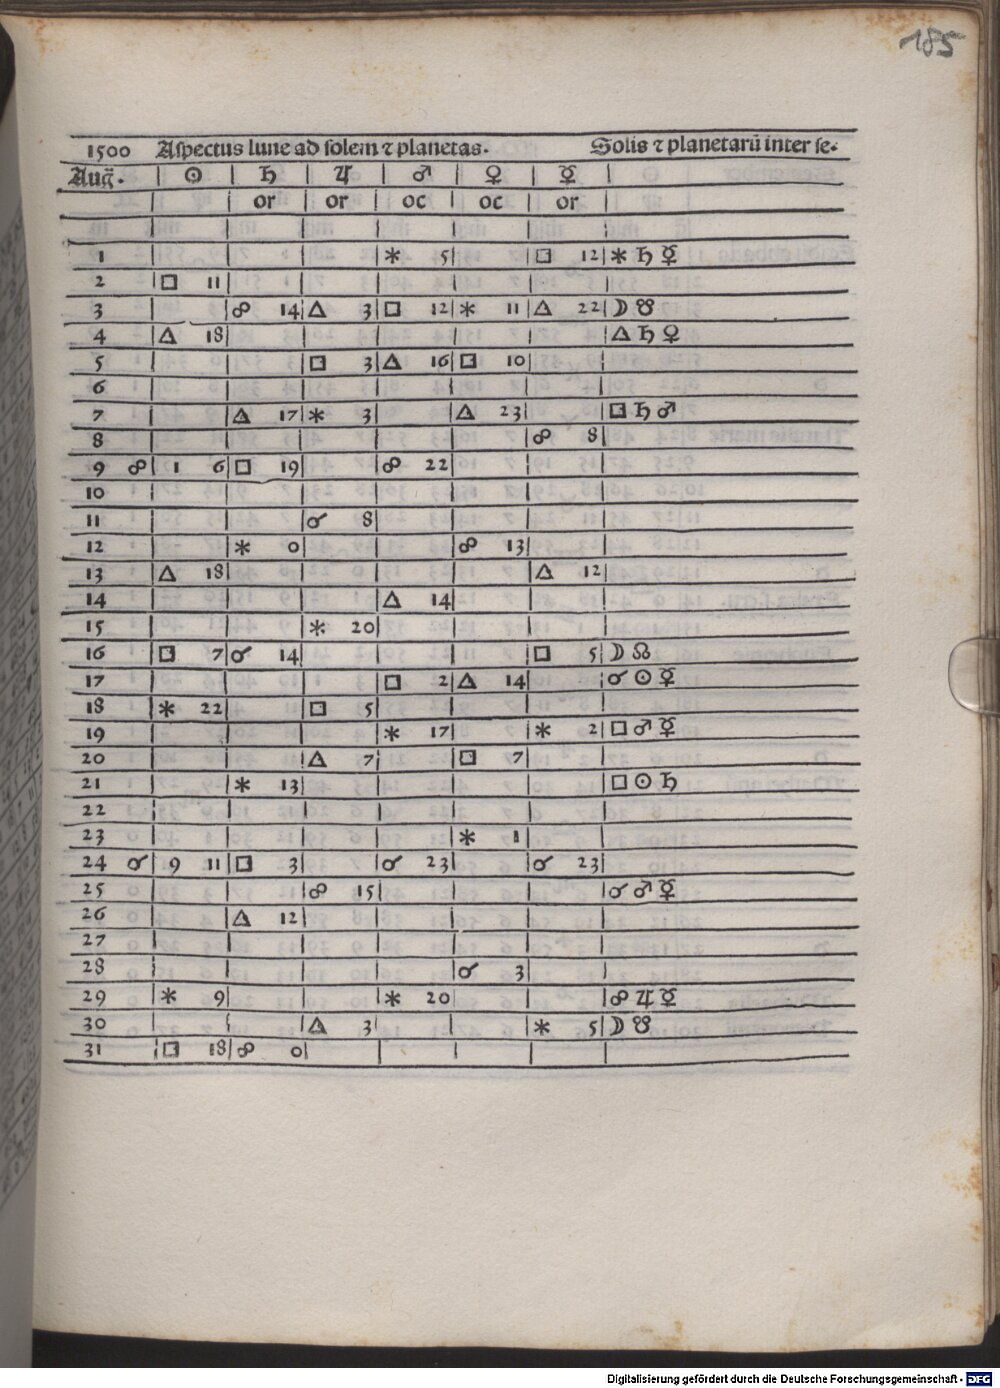 185
1500 Aspectus lune ad solem ⁊ planetas. Solis ⁊ planetarū inter se.
Aug̃. ☉ ♄ ♃ ♂ ♀ ☿
or or oc oc or
1 ⚹ 5 □ 12 ⚹ ♄ ☿
2 □ 11
3 ☍ 14 △ 3 □ 12 ⚹ 11 △ 22 ☽ ☋
4 △ 18 △ ♄ ♀
5 □ 3 △ 16 □ 10
6
7 △ 17 ⚹ 3 △ 23 □ ♄ ♂
8 ☍ 8
9 ☍ 1 6 □ 19 ☍ 22
10
11 ☌ 8
12 ⚹ 0 ☍ 13
13 △ 18 △ 12
14 △ 14
15 ⚹ 20
16 □ 7 ☌ 14 □ 5 ☽ ☊
17 □ 2 △ 14 ☌ ☉ ☿
18 ⚹ 22 □ 5
19 ⚹ 17 ⚹ 2 □ ♂ ☿
20 △ 7 □ 7
21 ⚹ 13 □ ☉ ♄
22
23 ⚹ 1
24 ☌ 9 11 □ 3 ☌ 23 ☌ 23
25 ☍ 15 ☌ ♂ ☿
26 △ 12
27
28 ☌ 3
29 ⚹ 9 ⚹ 20 ☍ ♃ ☿
30 △ 3 ⚹ 5 ☽ ☋
31 □ 18 ☍ 0
Digitalisierung gefördert durch die Deutsche Forschungsgemeinschaft - DFG